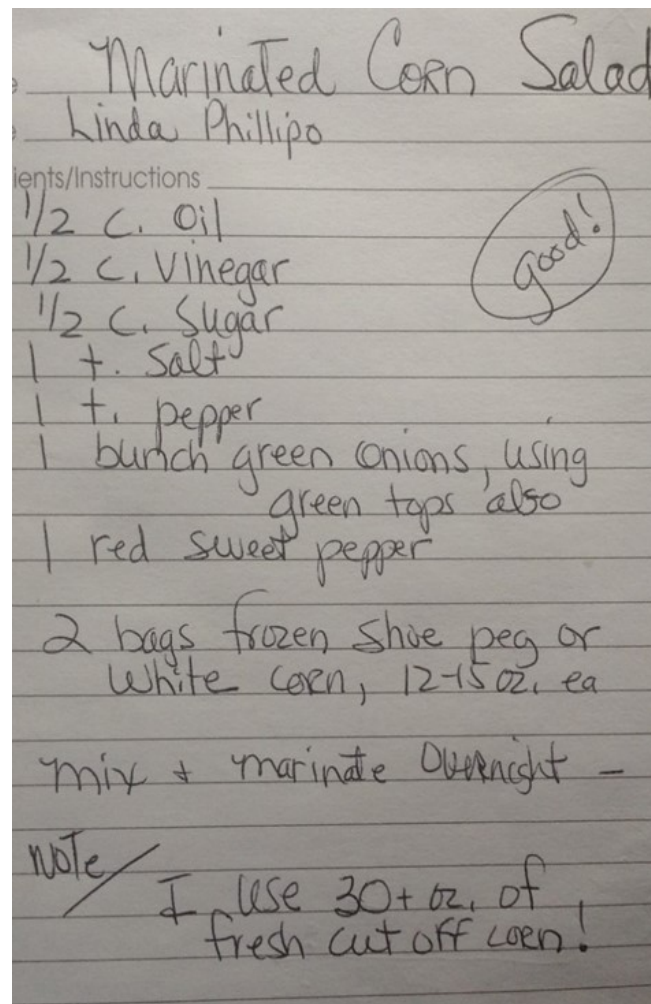 Marinated Corn Salad
Linda Phillipo
ients/Instructions
1/2 c. Oil
good!
1/2 c. Vinegar
1/2 c. Sugar
1 t. Salt
1 t. pepper
1 bunch green onions, using
green tops also
1 red sweet pepper
2 bags frozen shoe peg or
white corn, 12-15 oz. ea
mix + marinate overnight -
Note/
I use 30+ oz. of
fresh cut off corn!